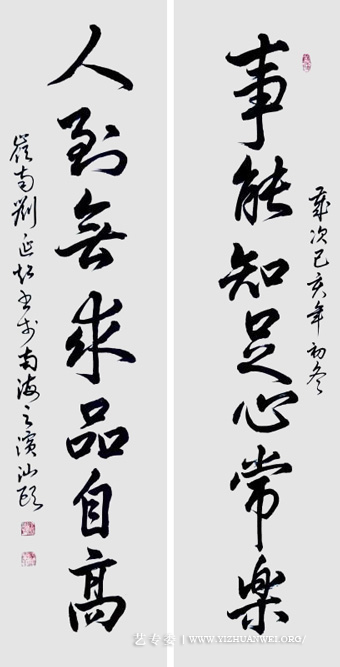 事能知足心常樂
歲次己亥年初冬
人到無求品自高
嶺南劉延超書於南海之濱汕頭
艺专委 | WWW.YIZHUANWEI.ORG/